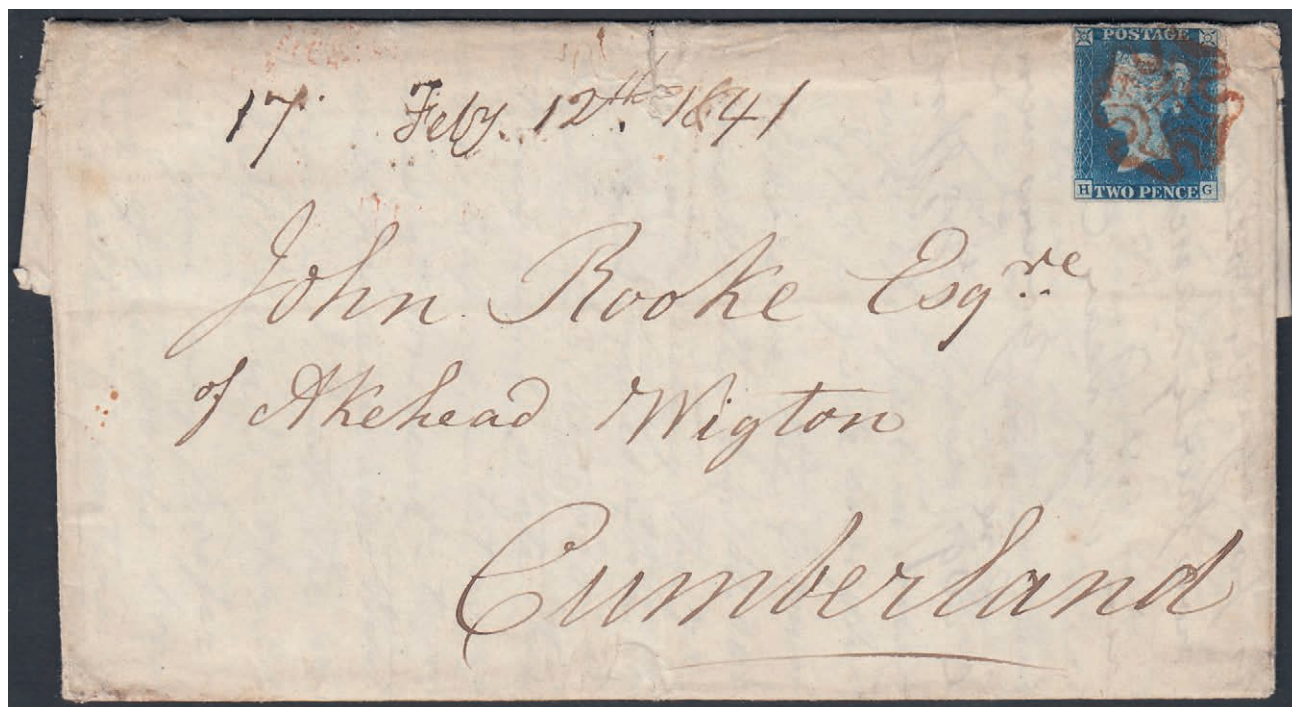 POSTAGE
H TWO PENCE G
17 Feby. 12th. 1841
John Rooke Esqre
of Akehead Wigton
Cumberland